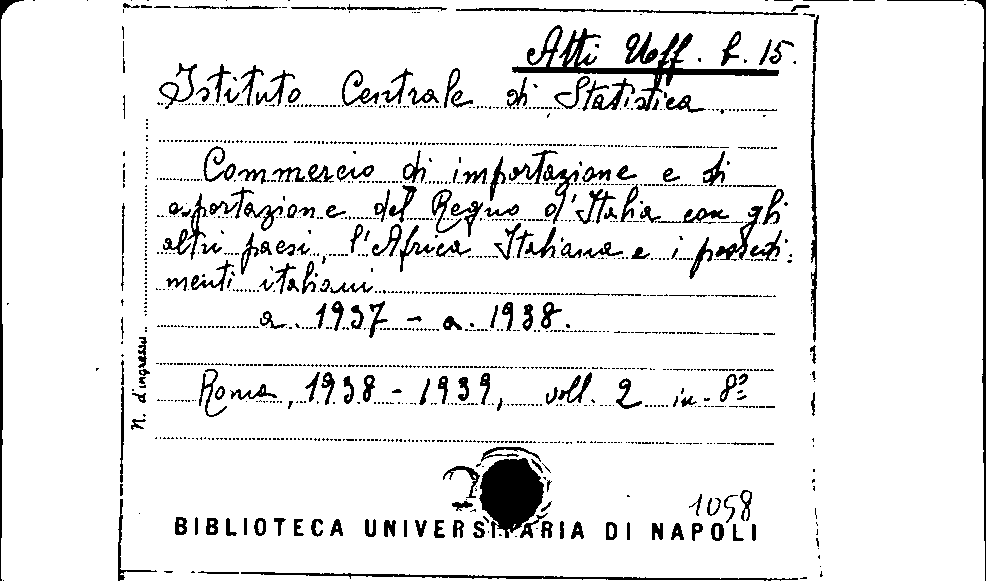 Atti Uff. b. 15.
Istituto Centrale di Statistica.
Commercio di importazione e di
esportazione del Regno d'Italia con gli
altri paesi, l'Africa Italiana e i possedi-
menti italiani
a. 1937 - a. 1938.
Roma, 1938 - 1939, voll. 2 in-8º
N. d'ingresso
1058
BIBLIOTECA UNIVERSITARIA DI NAPOLI